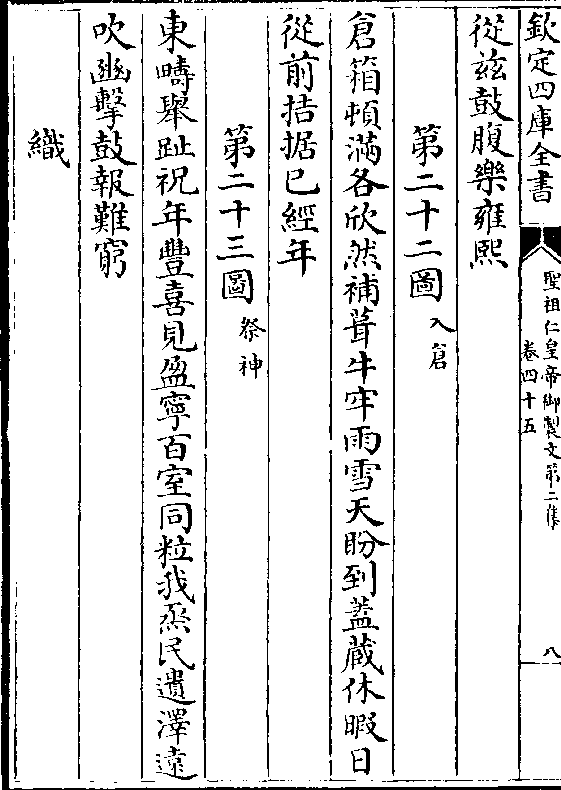 欽定四庫全書
聖祖仁皇帝御製文第二集
卷四十五
八
從兹鼓腹樂雍熙
第二十二圖入倉
倉箱頓滿各欣然補葺牛牢雨雪天盼到蓋藏休暇日
從前拮据已經年
第二十三圖祭神
東疇舉趾祝年豐喜見盈寧百室同粒我烝民遺澤遠
吹豳擊鼓報難窮
織